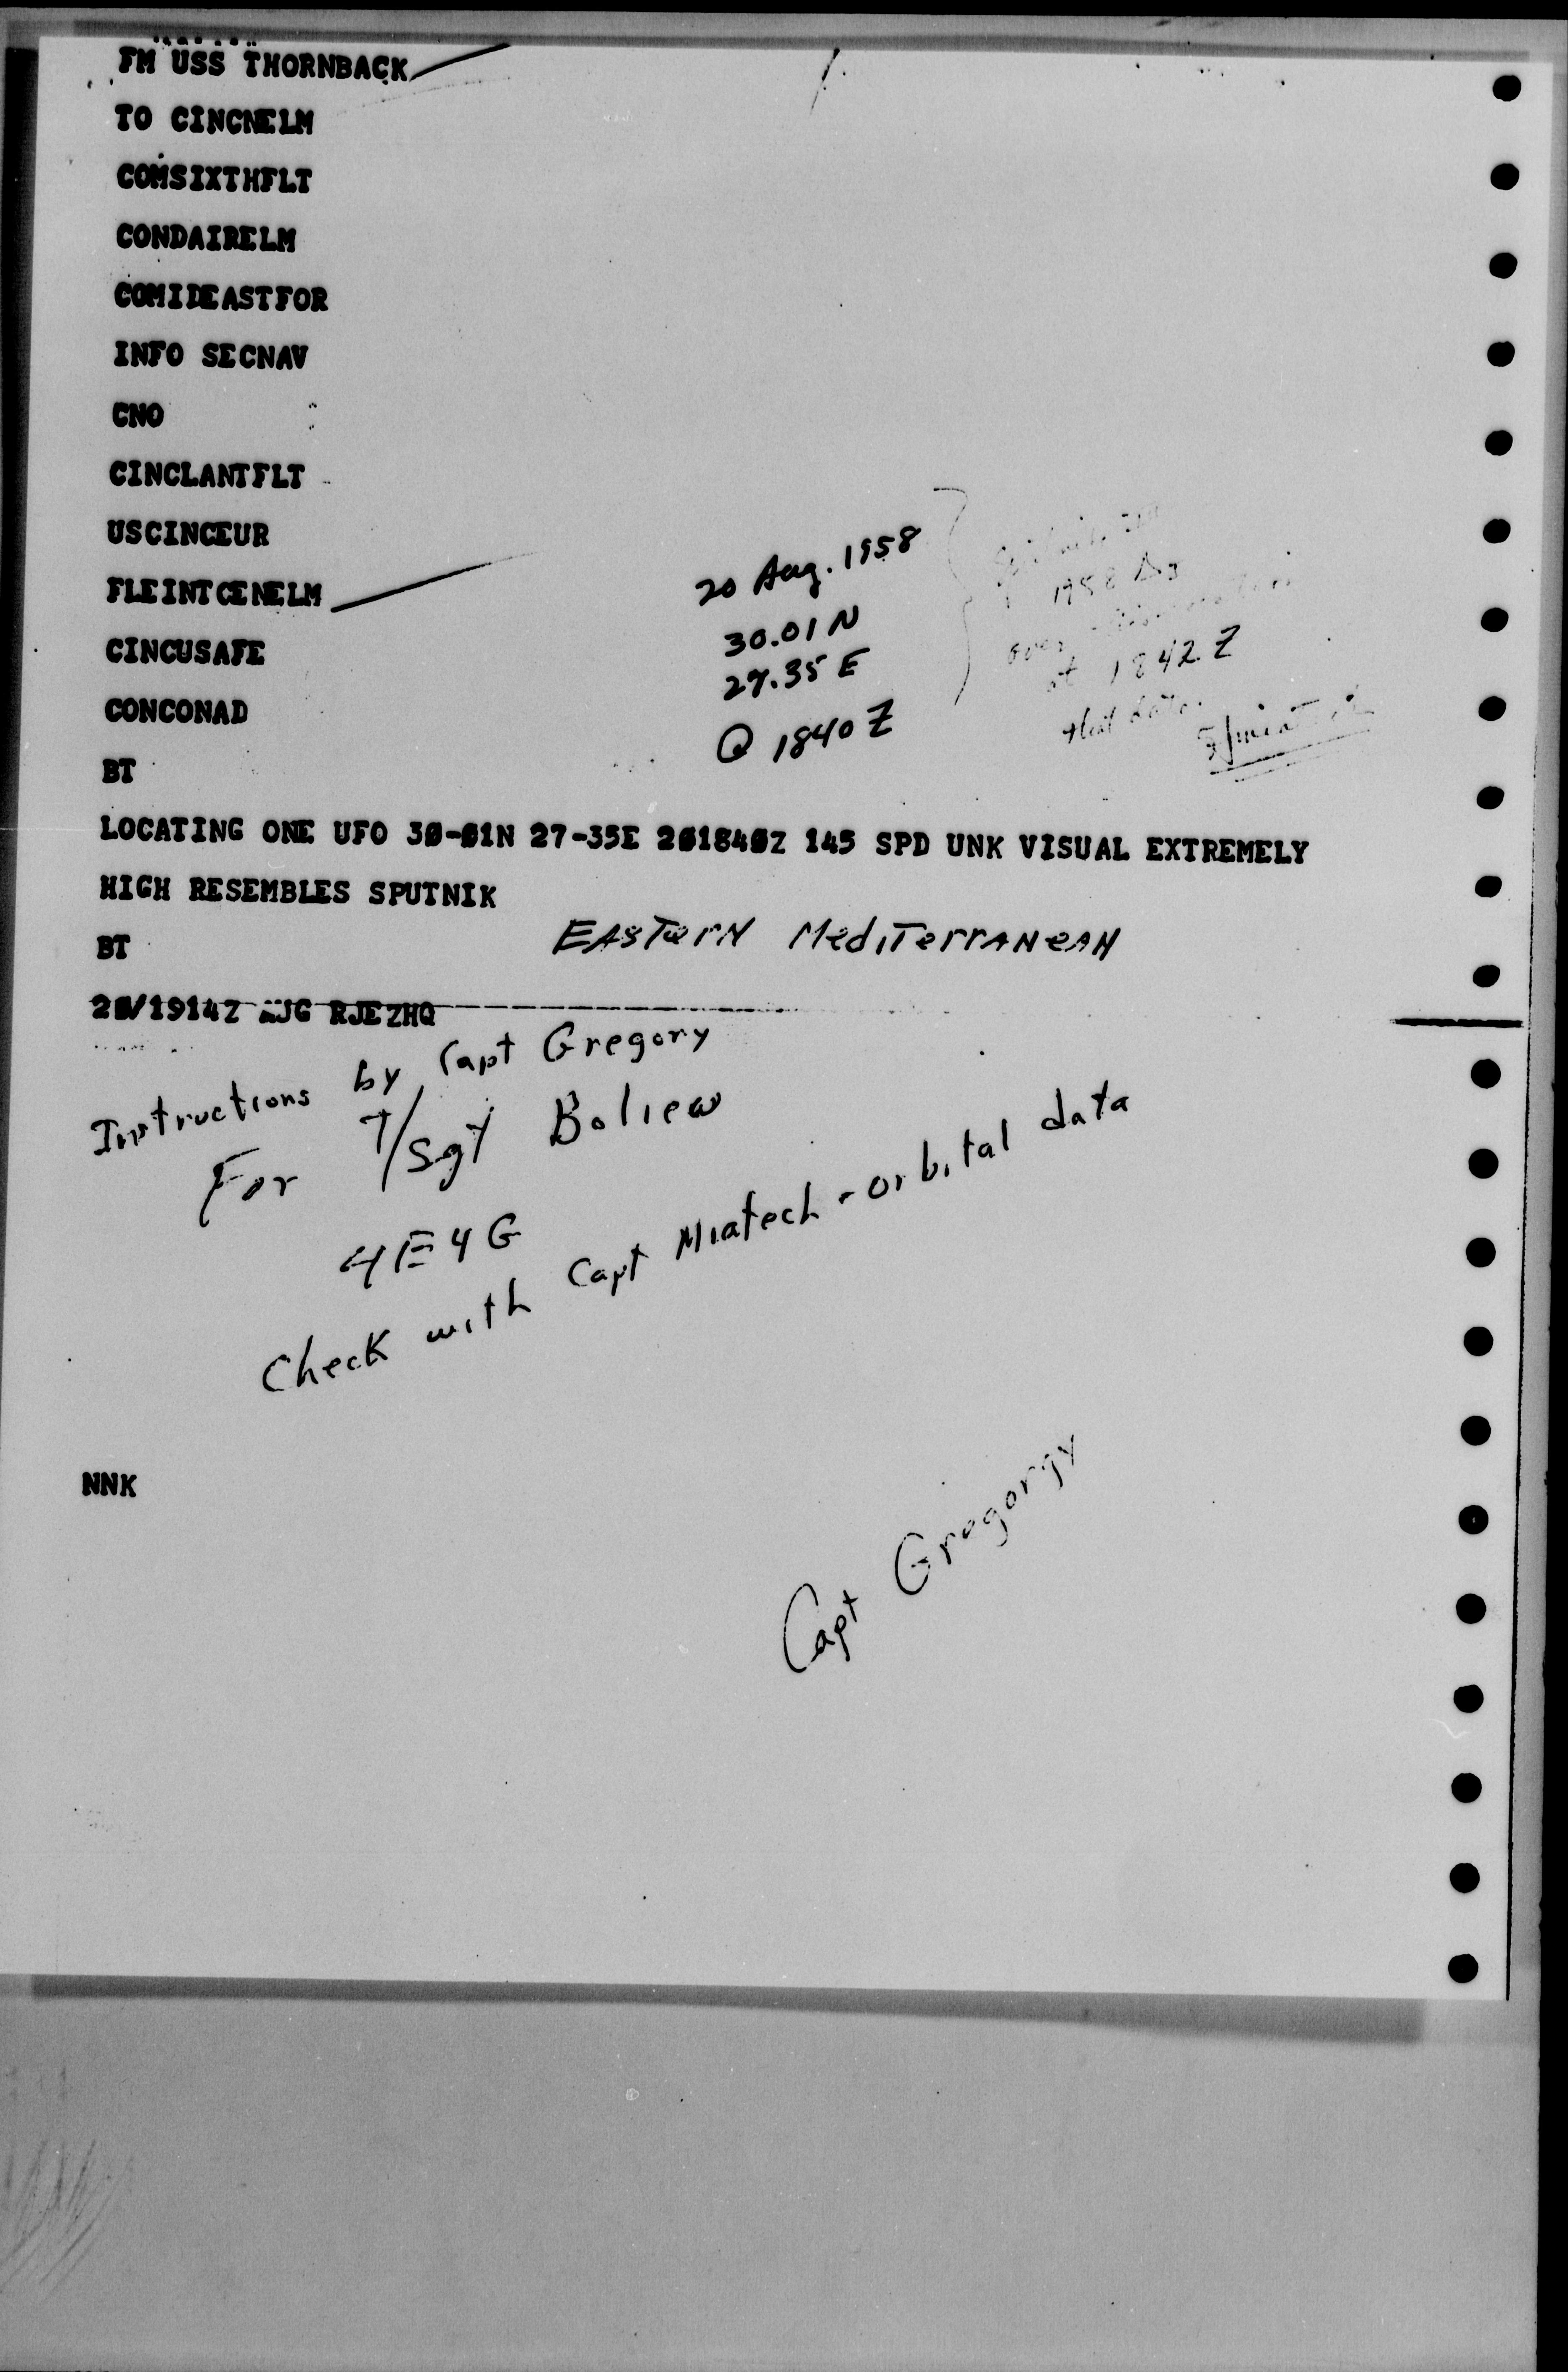 FM USS THORNBACK
TO CINCNELM
COMSIXTHFLT
CONDAIRELM
COMIDEASTFOR
INFO SECNAV
CNO
CINCLANTFLT
USCINCEUR
FLEINTCENELM
CINCUSAFE
CONCONAD
BT
20 Aug. 1958
30.01 N
27.35 E
@ 1840 Z
1958
over
at 1842 Z
that date.
LOCATING ONE UFO 30-01N 27-35E 201840Z 145 SPD UNK VISUAL EXTREMELY
HIGH RESEMBLES SPUTNIK
BT
EASTerN MediTerrANeAN
20/1914Z AUG RJEZHQ
Instructions by Capt Gregory
For T/Sgt Boliew
4E4G
Check with Capt Miatech - orbital data
NNK
Capt Gregorgy